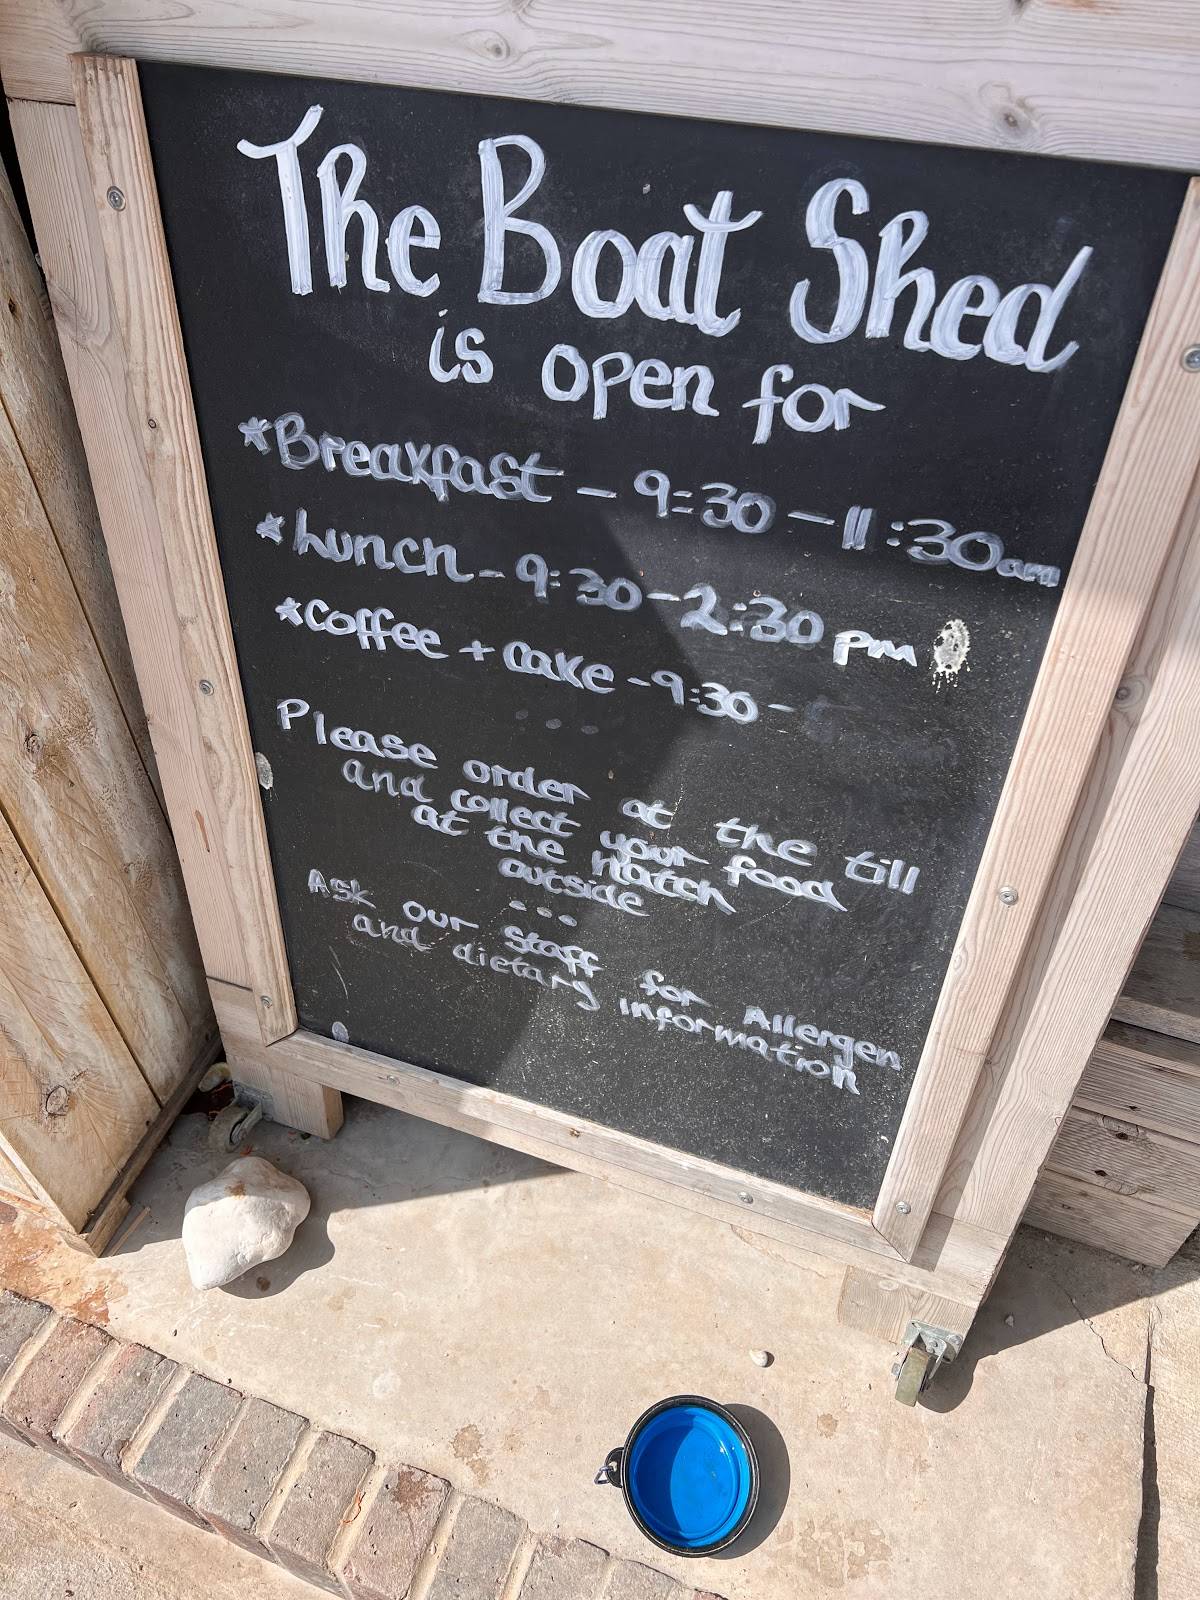 The Boat Shed
is open for
*Breakfast - 9:30 - 11:30am
*Lunch - 9:30 - 2:30 pm
*Coffee + cake - 9:30 -
...
Please order at the till
and collect your food
at the hatch
outside
...
Ask our staff for Allergen
and dietary information